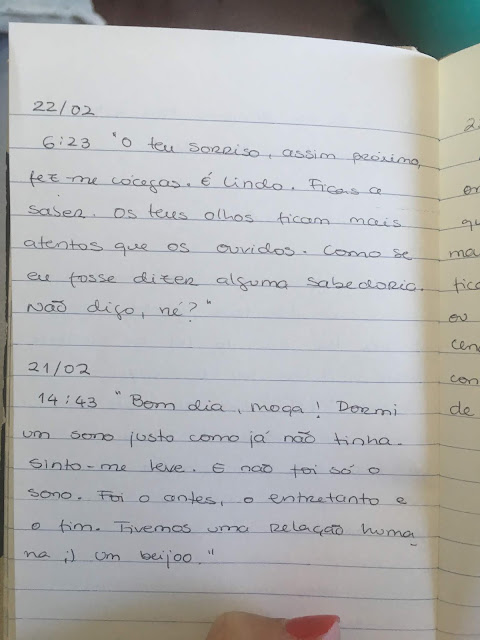 22/02
6:23 "O teu sorriso, assim próximo,
fez-me cócegas. É lindo. Ficas a
saber. Os teus olhos ficam mais
atentos que os ouvidos. Como se
eu fosse dizer alguma sabedoria.
Não digo, né?"
21/02
14:43 "Bom dia, moça! Dormi
um sono justo como já não tinha.
Sinto-me leve. E não foi só o
sono. Foi o antes, o entretanto e
o fim. Tivemos uma relação huma
na ;) um beijoo."
2
en
qu
ma
fica
ou
cen
con
de